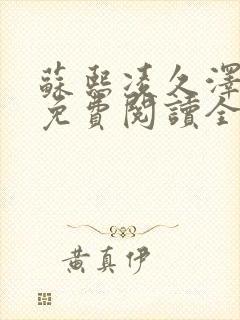 蘇熙凌久澤
免費閱讀全
黃真伊